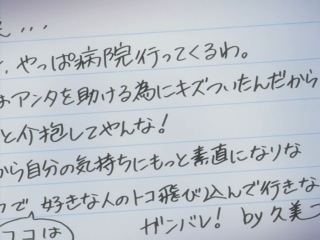 、やっぱ病院行ってくるわ。
アンタを助ける為にキズついたんだから
と介抱してやんな！
から自分の気持ちにもっと素直になりな
で 好きな人のトコ飛び込んで行きな
ココは
ガンバレ！ by 久美